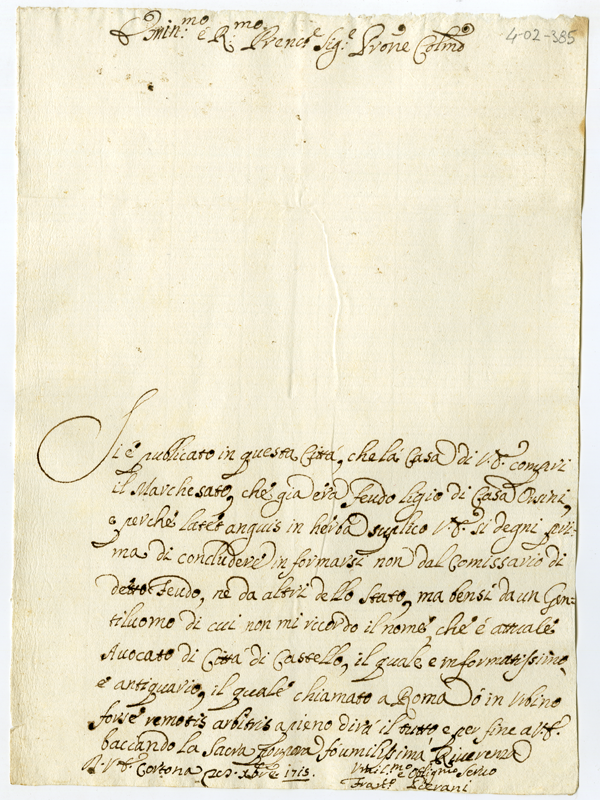 Emin.mo e R.mo Prenc.e Sig.e Prone Colmo
4-02-385
Si è publicato in questa Città, che la Casa di V.E. compri
il Marchesato, che già era feudo ligio di Casa Orsini,
e perche latet anguis in herba suplico V.E. si degni pri-
ma di concludere informarsi non dal Comissario di
detto Feudo, ne da altri dello stato, ma bensi da un Gen-
tiluomo di cui non mi ricordo il nome, che è attuale
Avocato di Città di Castello, il quale e informatissimo,
e antiquario, il quale chiamato a Roma ò in Urbino
forse remotis arbitris apieno dirà il tutto e per fine a V.E.
baccando la Sacra Porpora fò umilissima Riverenza
D. V.E. Cortona xbre 1713.
Umil.mo e Obligmo Servo